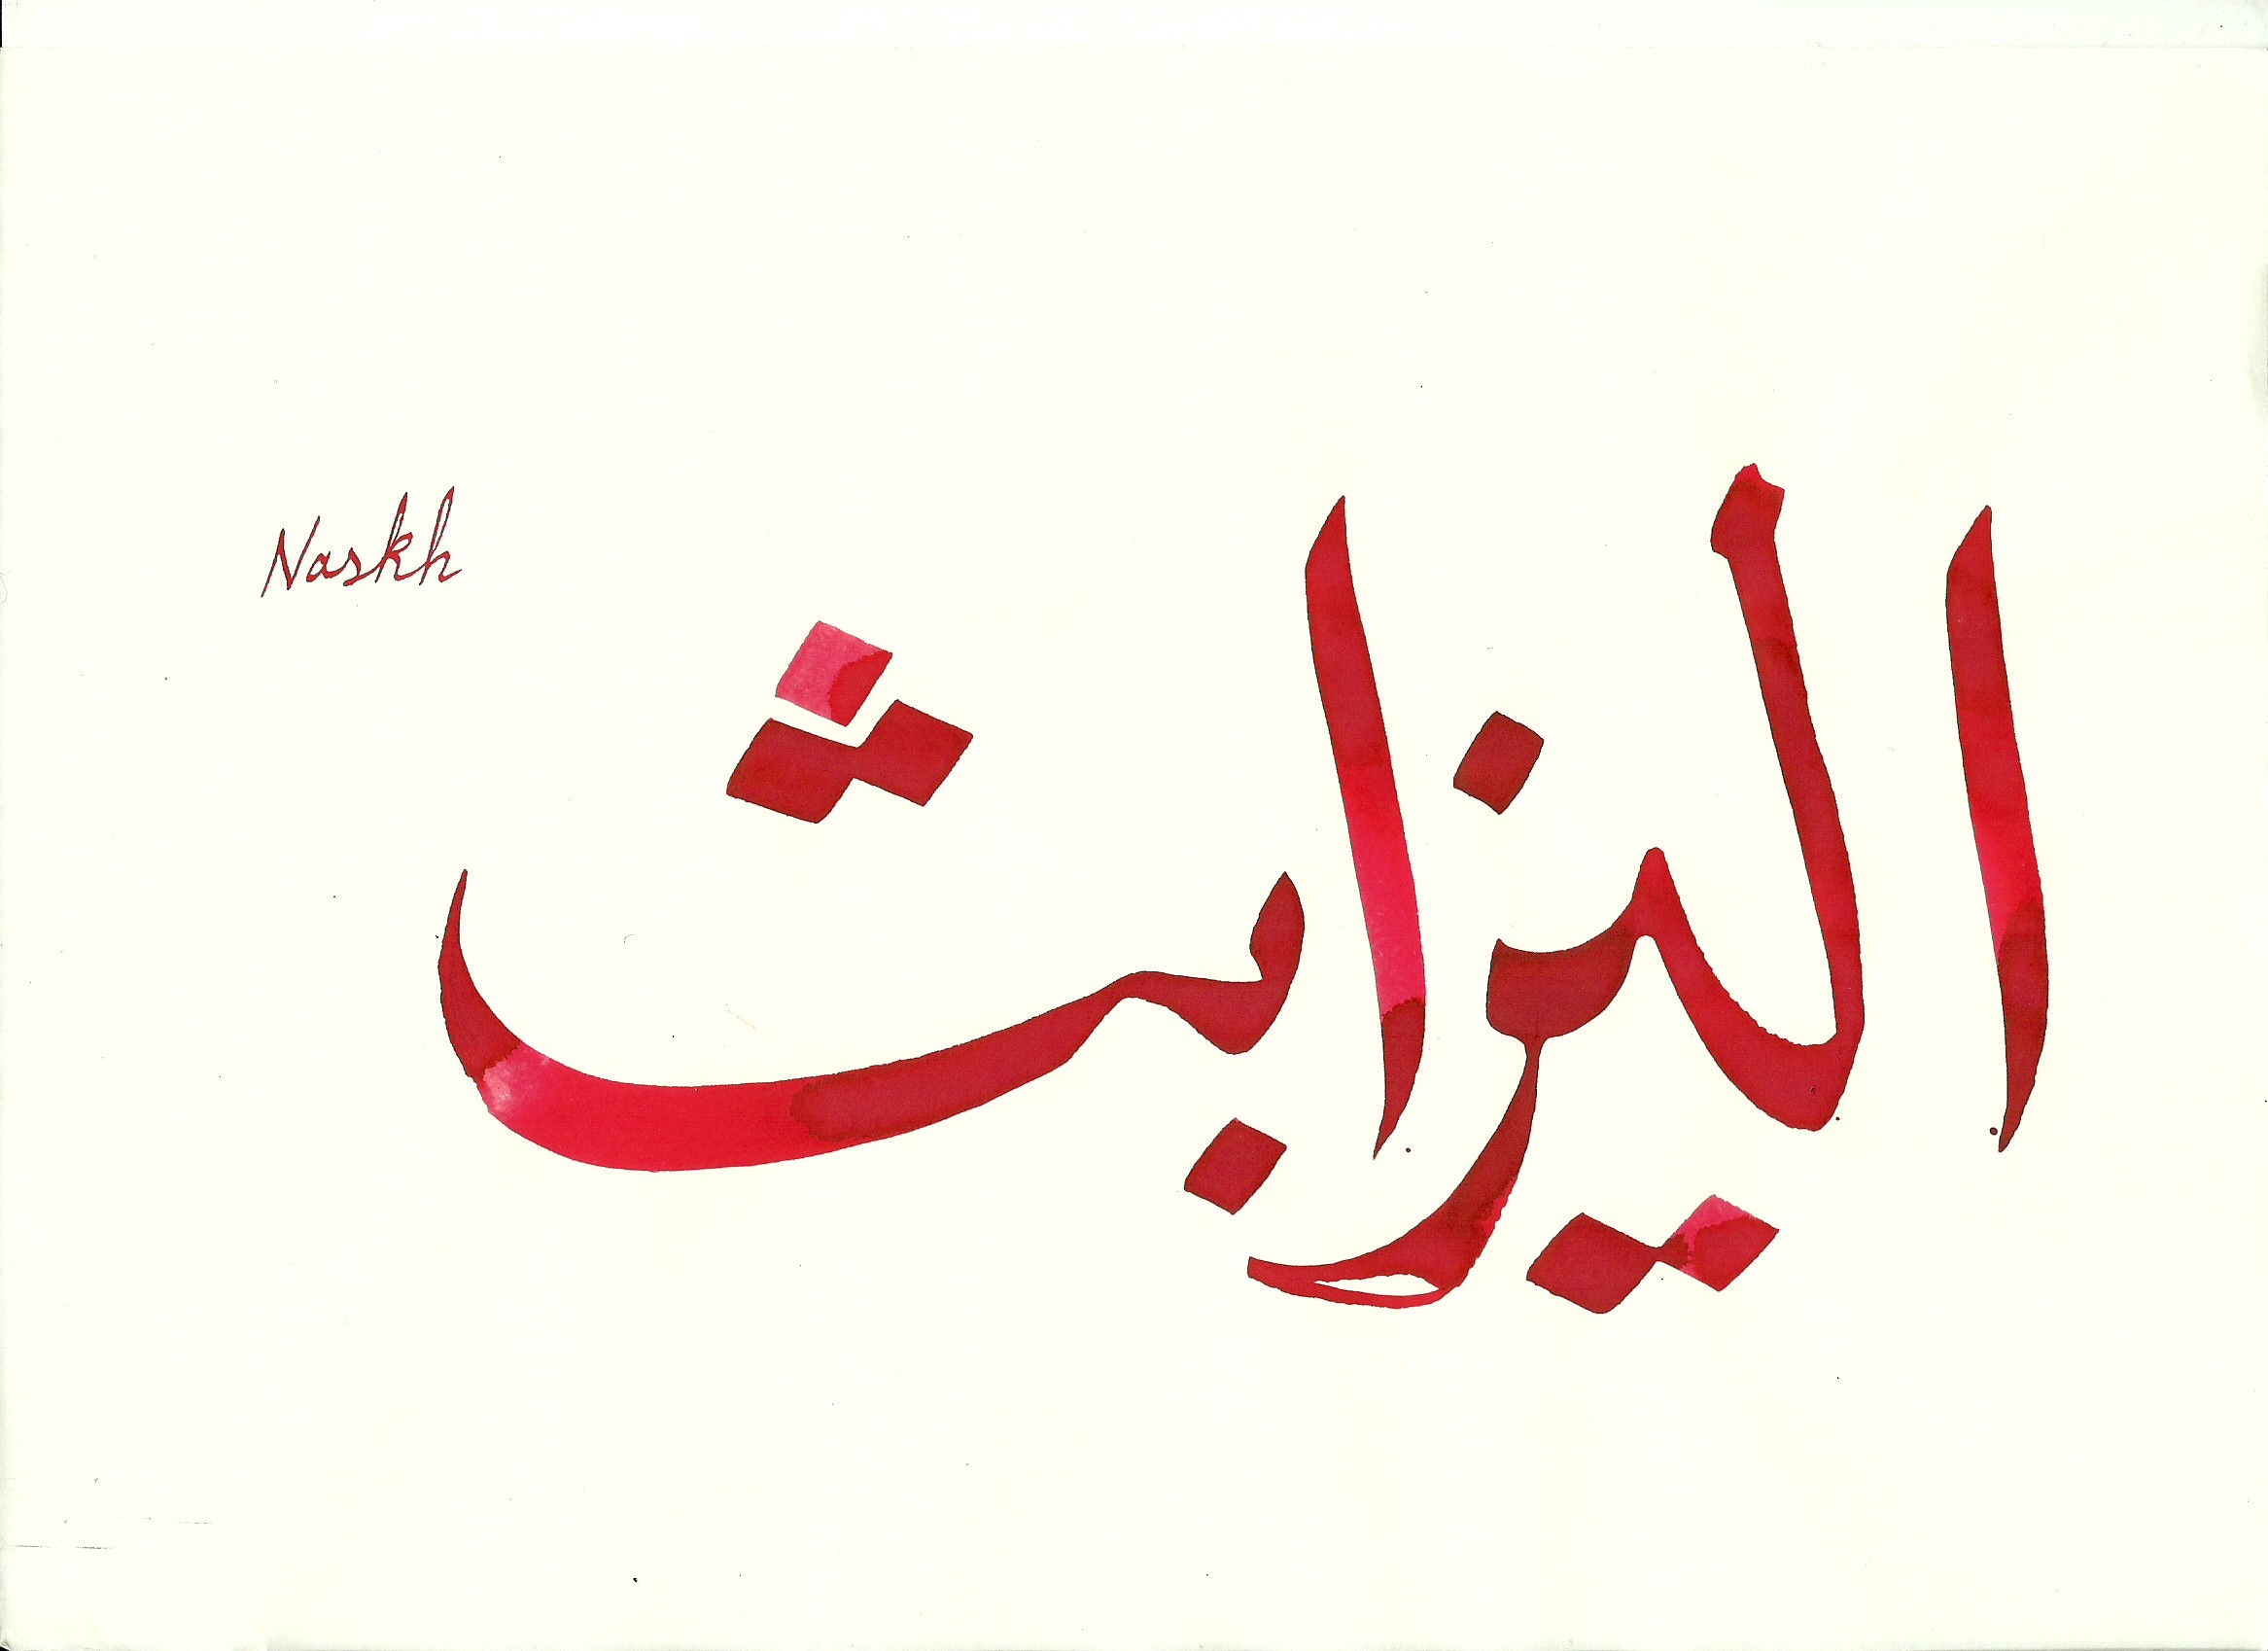 Naskh
اليزابث